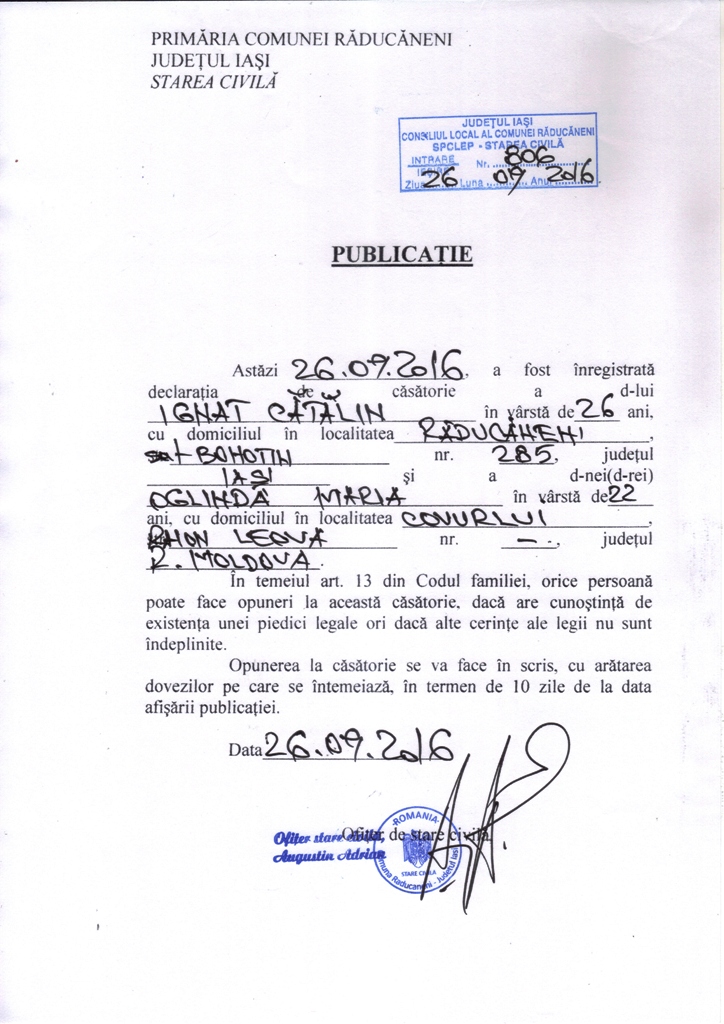 PRIMĂRIA COMUNEI RĂDUCĂNENI
JUDEȚUL IAȘI
STAREA CIVILĂ
JUDEȚUL IAȘI
CONSILIUL LOCAL AL COMUNEI RĂDUCĂNENI
SPCLEP - STAREA CIVILĂ
INTRARE Nr. 806
IEȘIRE
Ziua 26 Luna 09 Anul 2016
PUBLICAȚIE
Astăzi 26.09.2016, a fost înregistrată
declarația de căsătorie a d-lui
IGNAT CĂTĂLIN în vârstă de 26 ani,
cu domiciliul în localitatea RĂDUCĂNENI,
sat BOHOTIN nr. 285, județul
IAȘI și a d-nei(d-rei)
OGLINDĂ MARIA în vârstă de 22
ani, cu domiciliul în localitatea COVURLUI,
RAION LEOVA nr. - -, județul
R. MOLDOVA.
În temeiul art. 13 din Codul familiei, orice persoană
poate face opuneri la această căsătorie, dacă are cunoștință de
existența unei piedici legale ori dacă alte cerințe ale legii nu sunt
îndeplinite.
Opunerea la căsătorie se va face în scris, cu arătarea
dovezilor pe care se întemeiază, în termen de 10 zile de la data
afișării publicației.
Data 26.09.2016
Ofițer de stare civilă,
Ofițer stare civilă,
Augustin Adrian
ROMANIA
STARE CIVILA
Comuna Raducaneni - Judetul Iasi